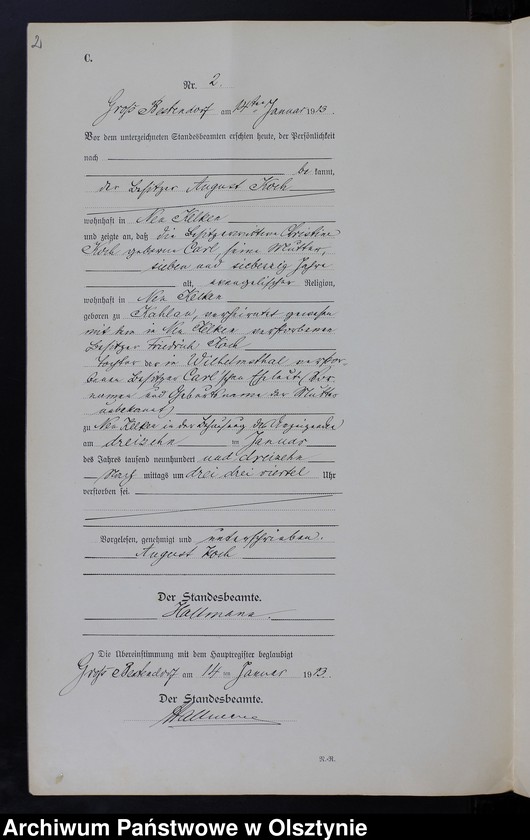 2
C.
Nr. 2.
Groß Bestendorf am 14ten Januar 1913.
Vor dem unterzeichneten Standesbeamten erschien heute, der Persönlichkeit
nach
be kannt,
der Besitzer August Koch
wohnhaft in Neu Kelken
und zeigte an, daß die Besitzerwittwe Christine
Koch geborene Carl, seine Mutter,
sieben und siebenzig Jahre
alt, evangelischer Religion,
wohnhaft in Neu Kelken
geboren zu Kahlau, verheiratet gewesen
mit dem in Neu Kelken verstorbenen
Besitzer Friedrich Koch
Tochter der in Wilhelmsthal verstor-
benen Besitzer Carl'schen Eheleute (Vor-
namen und Geburtsname der Mutter
unbekannt)
zu Neu Kelken in der Behausung des Anzeigenden
am dreizehn im Januar
des Jahres tausend neunhundert und dreizehn
Nach mittags um drei drei viertel Uhr
verstorben sei.
Vorgelesen, genehmigt und unterschrieben.
August Koch
Der Standesbeamte.
Hallmann.
Die Übereinstimmung mit dem Hauptregister beglaubigt
Groß Bestendorf am 14 ten Januar 1913.
Der Standesbeamte.
Hallmann
N.-R.
Archiwum Państwowe w Olsztynie